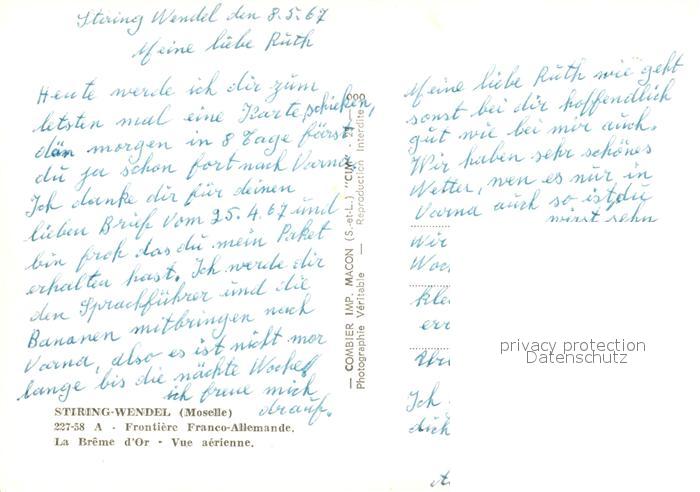 Stiring Wendel den 8.5.67
Meine liebe Ruth
Heute werde ich dir zum
letsten mal eine Karte schicken,
dän morgen in 8 Tage färst
du ja schon fort nach Varna
Ich danke dir für deinen
lieben Brief vom 25.4.67 und
bin froh das du mein Paket
erhalten hast. Ich werde dir
den Sprachführer und die
Bananen mitbringen nach
Varna, also es ist nicht mer
lange bis die nächte Woche
ich freue mich
drauf.
STIRING-WENDEL (Moselle)
227-58 A - Frontière Franco-Allemande.
La Brême d'Or - Vue aérienne.
— COMBIER IMP. MACON (S.-et-L.) "CIM"
Photographie Véritable — Reproduction Interdite
Meine liebe Ruth wie geht
sonst bei dir hoffendlich
gut wie bei mir auch.
Wir haben sehr schönes
Wetter, wen es nur in
Varna auch so ist du
wirst sehn
Wir
Woc
kle
err
Ich
dich
privacy protection
Datenschutz